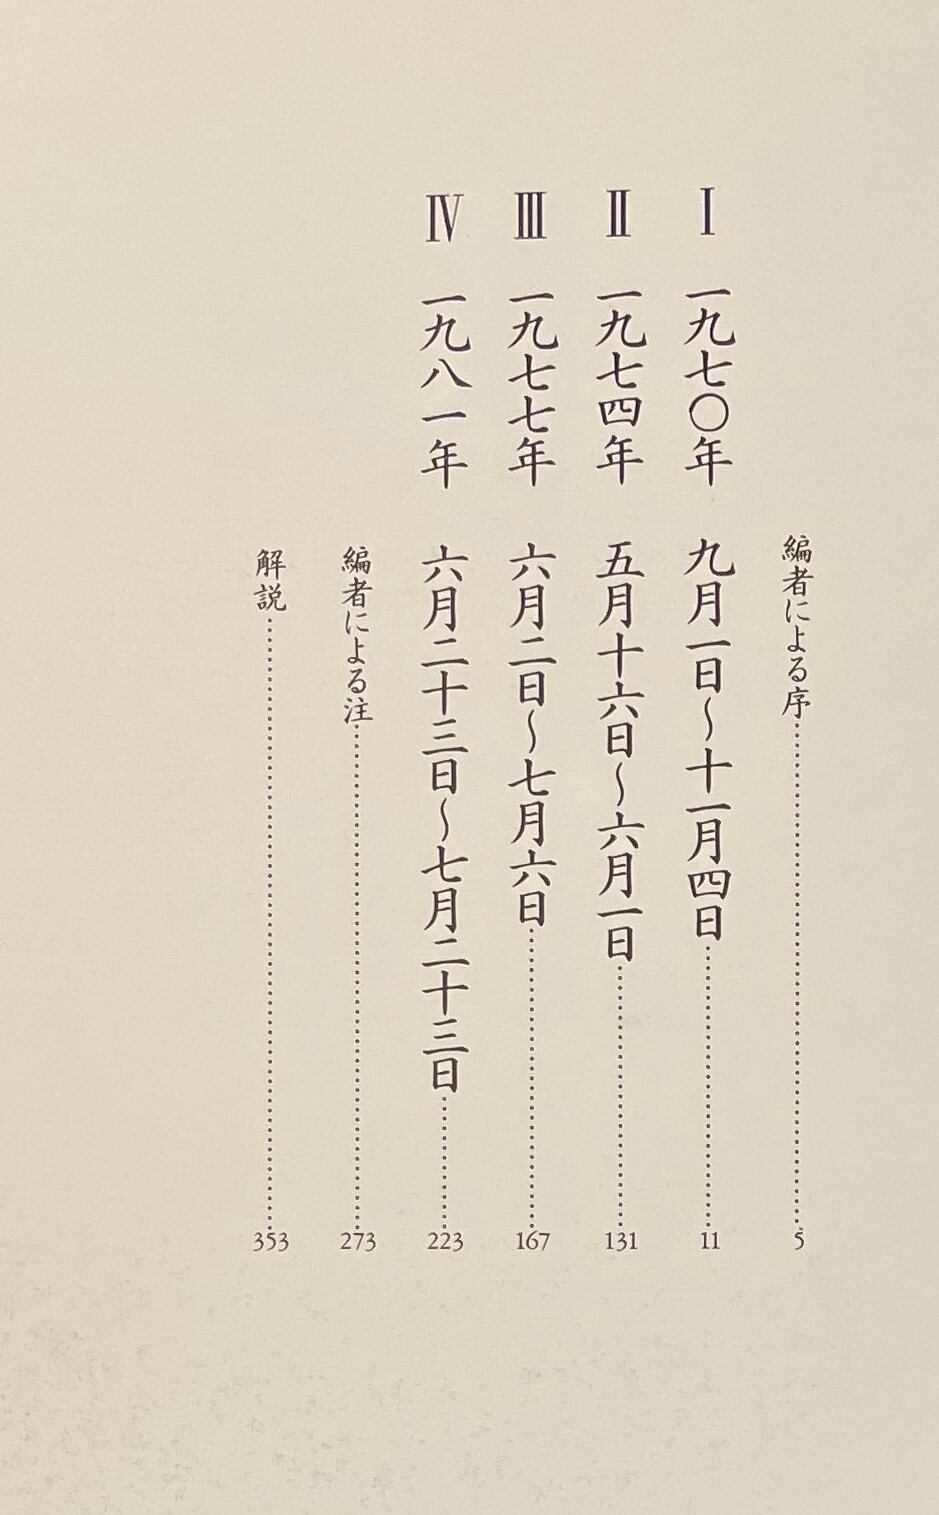 編者による序……5
Ⅰ 一九七〇年 九月一日～十一月四日……11
Ⅱ 一九七四年 五月十六日～六月一日……131
Ⅲ 一九七七年 六月二日～七月六日……167
Ⅳ 一九八一年 六月二十三日～七月二十三日……223
編者による注……273
解説……353